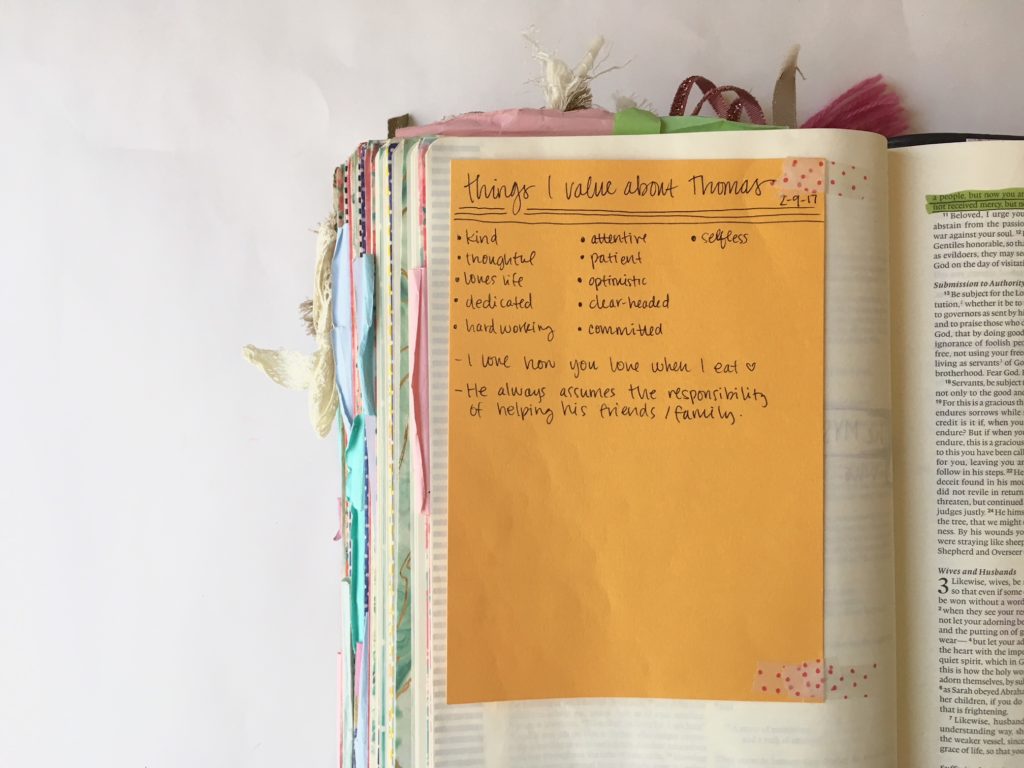 things I value about Thomas
2-9-17
• kind
• thoughtful
• loves life
• dedicated
• hardworking
• attentive
• patient
• optimistic
• clear-headed
• committed
• selfless
- I love how you love when I eat ♡
- He always assumes the responsibility
of helping his friends/family.
a people, but now you a
not received mercy, but n
11 Beloved, I urge you
abstain from the passio
war against your soul. 12
Gentiles honorable, so tha
as evildoers, they may se
God on the day of visitati
Submission to Authority
13 Be subject for the Lo
tution, whether it be to
to governors as sent by hi
and to praise those who d
God, that by doing good
ignorance of foolish peo
free, not using your free
living as servants of Go
brotherhood. Fear God. H
18 Servants, be subject
not only to the good and
19 For this is a gracious th
endures sorrows while
credit is it if, when you
endure? But if when you
endure, this is a gracious
to this you have been call
for you, leaving you an
follow in his steps. 22 He
deceit found in his mou
did not revile in return
threaten, but continued
judges justly. 24 He hims
the tree, that we might
ness. By his wounds yo
were straying like sheep
Shepherd and Overseer
Wives and Husbands
3 Likewise, wives, be
so that even if some
be won without a word
2 when they see your re
not let your adorning be
and the putting on of g
wear— 4 but let your ad
the heart with the impe
quiet spirit, which in G
this is how the holy wo
adorn themselves, by su
6 as Sarah obeyed Abraha
her children, if you do
that is frightening.
7 Likewise, husband
understanding way, sh
the weaker vessel, since
grace of life, so that yo